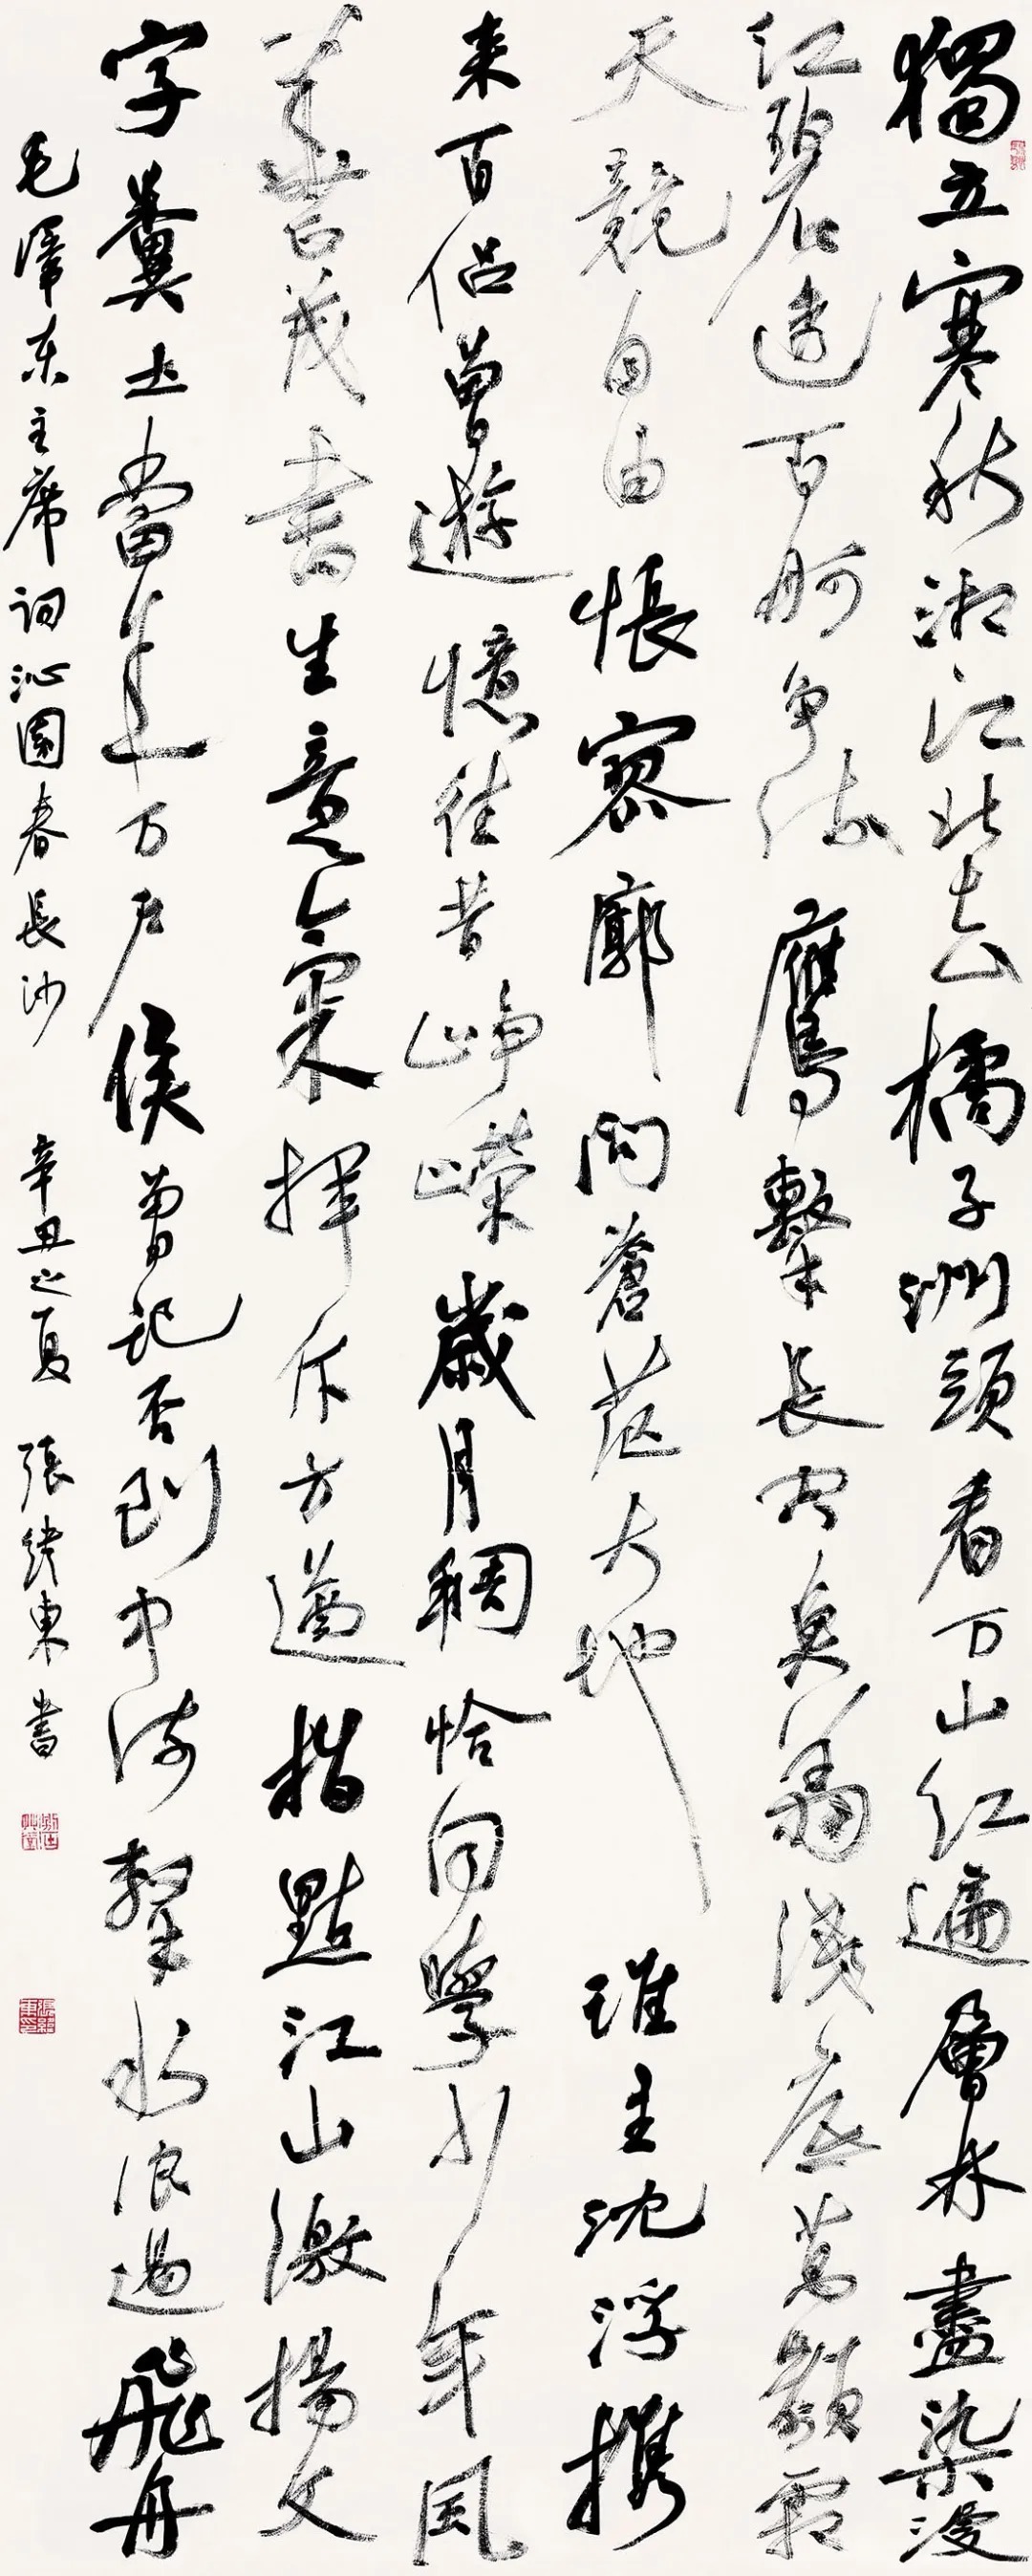 獨立寒秋湘江北去橘子洲頭看万山红遍層林盡染漫
江碧透百舸争流鷹擊長空魚翔淺底萬類霜
天競自由悵寥廓問蒼茫大地誰主沈浮携
来百侣曾遊憶往昔崢嶸歲月稠恰同學少年風
華正茂書生意氣揮斥方遒指點江山激揚文
字糞土當年万户侯曾記否到中流擊水浪遏飛舟
毛澤东主席词沁園春長沙 辛丑之夏 張继東書